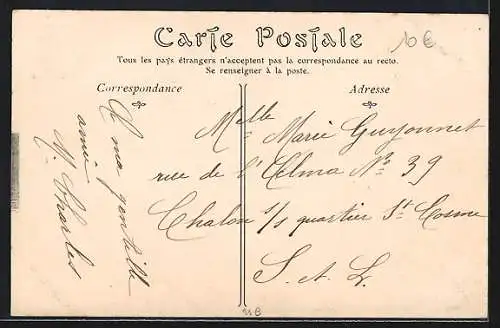 Carte Postale
10 €
Tous les pays étrangers n'acceptent pas la correspondance au recto.
Se renseigner à la poste.
Correspondance
A ma gentille
amie
M. Charles
Adresse
Melle Marie Guyonnet
rue de l'Alma No 39
Chalon s/s quartier St Cosme
S. et L.